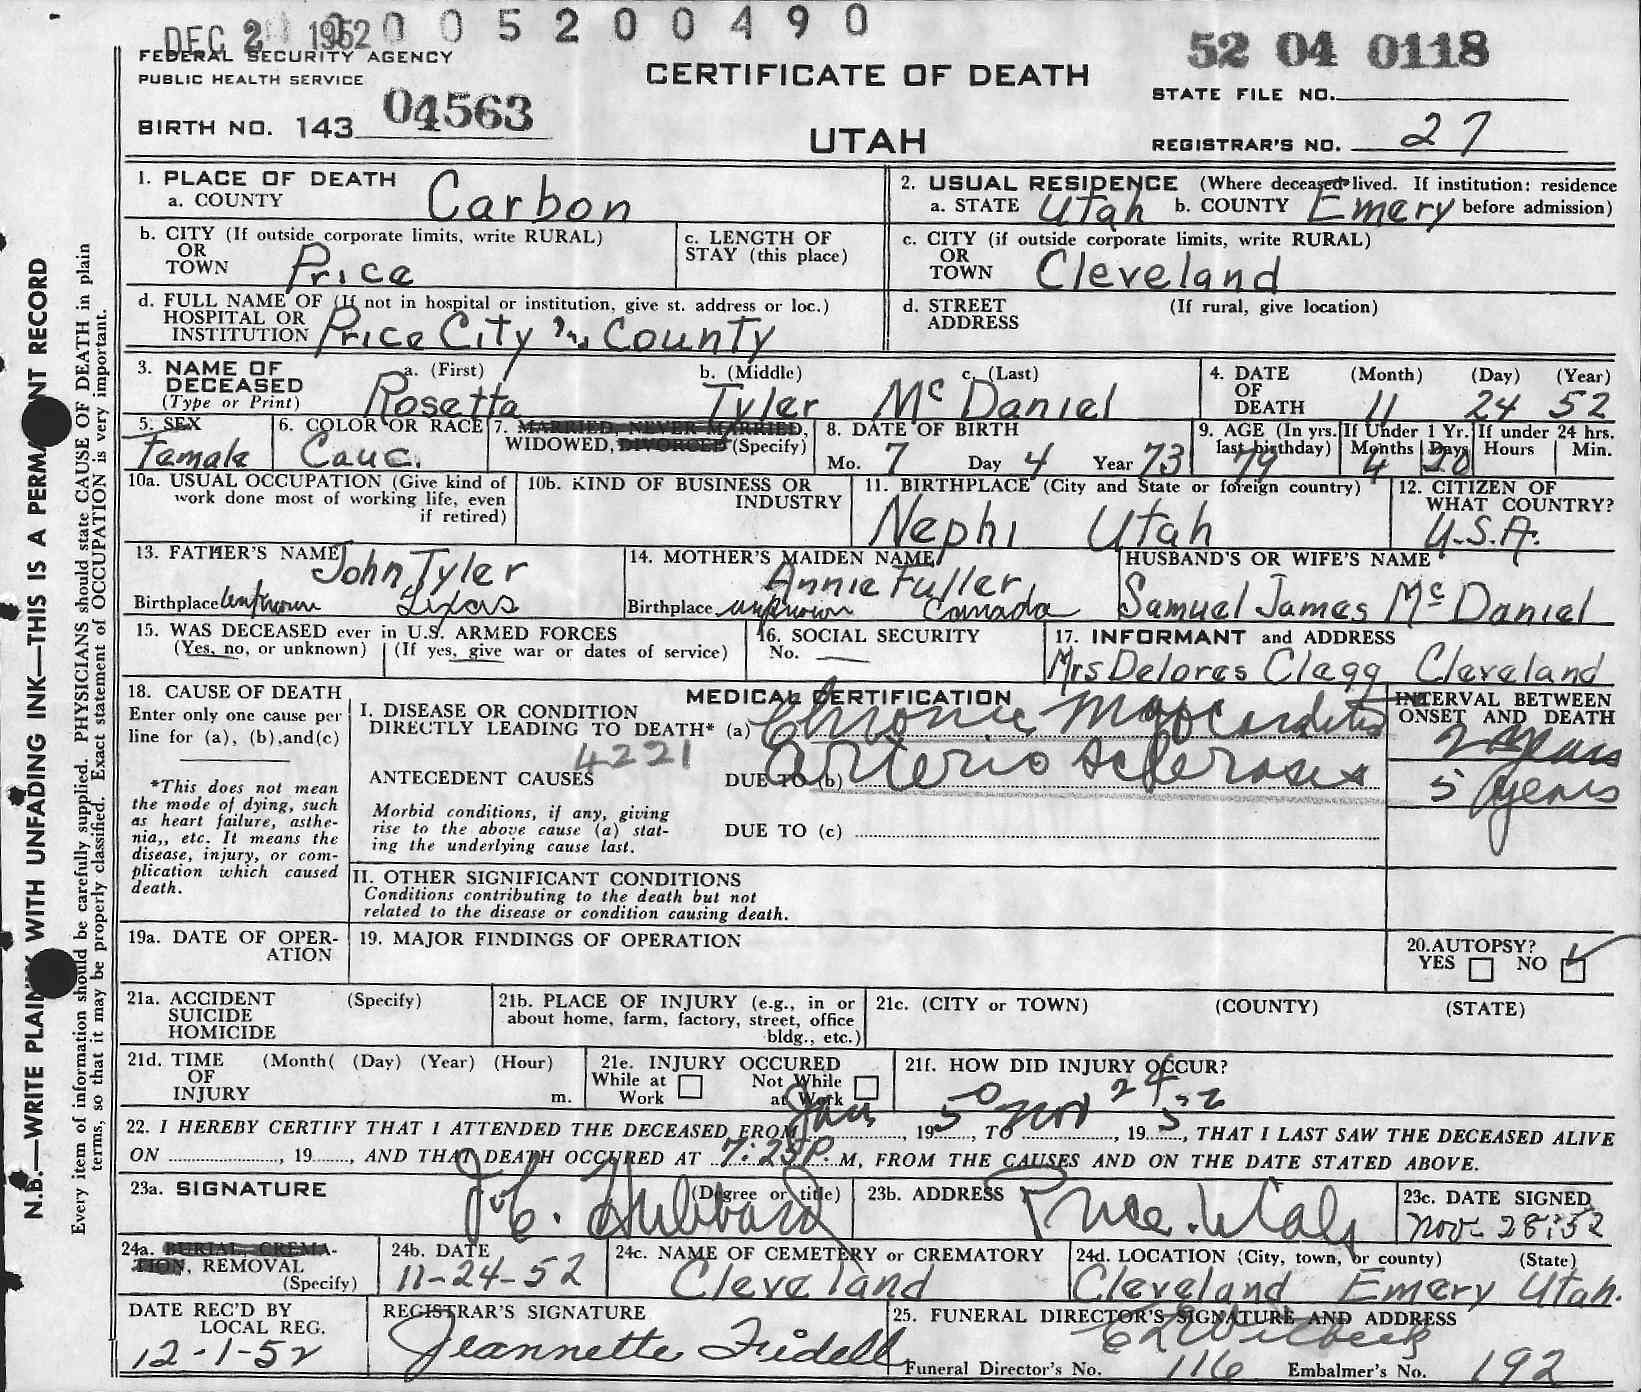 DEC 2 1952 0 0 5 2 0 0 4 9 0
FEDERAL SECURITY AGENCY
PUBLIC HEALTH SERVICE
BIRTH NO. 143 04563
CERTIFICATE OF DEATH
UTAH
52 04 0118
STATE FILE NO.
REGISTRAR'S NO. 27
N.B.—WRITE PLAINLY WITH UNFADING INK—THIS IS A PERMANENT RECORD
Every item of information should be carefully supplied. PHYSICIANS should state CAUSE OF DEATH in plain
terms, so that it may be properly classified. Exact statement of OCCUPATION is very important.
1. PLACE OF DEATH
a. COUNTY Carbon
2. USUAL RESIDENCE (Where deceased lived. If institution: residence
a. STATE Utah b. COUNTY Emery before admission)
b. CITY (If outside corporate limits, write RURAL)
OR
TOWN Price
c. LENGTH OF
STAY (this place)
c. CITY (if outside corporate limits, write RURAL)
OR
TOWN Cleveland
d. FULL NAME OF (If not in hospital or institution, give st. address or loc.)
HOSPITAL OR
INSTITUTION Price City County
d. STREET (If rural, give location)
ADDRESS
3. NAME OF
DECEASED
(Type or Print)
a. (First) b. (Middle) c. (Last)
Rosetta Tyler McDaniel
4. DATE (Month) (Day) (Year)
OF
DEATH 11 24 52
5. SEX
Female
6. COLOR OR RACE
Cauc.
7. MARRIED, NEVER MARRIED,
WIDOWED, DIVORCED (Specify)
8. DATE OF BIRTH
Mo. 7 Day 4 Year 73
9. AGE (In yrs. If Under 1 Yr. If under 24 hrs.
last birthday) Months Days Hours Min.
79 4 20
10a. USUAL OCCUPATION (Give kind of
work done most of working life, even
if retired)
10b. KIND OF BUSINESS OR
INDUSTRY
11. BIRTHPLACE (City and State or foreign country)
Nephi Utah
12. CITIZEN OF
WHAT COUNTRY?
U.S.A.
13. FATHER'S NAME John Tyler
Birthplace unknown Texas
14. MOTHER'S MAIDEN NAME
Annie Fuller
Birthplace unknown Canada
HUSBAND'S OR WIFE'S NAME
Samuel James McDaniel
15. WAS DECEASED ever in U.S. ARMED FORCES
(Yes, no, or unknown) (If yes, give war or dates of service)
16. SOCIAL SECURITY
No.
17. INFORMANT and ADDRESS
Mrs Delores Clegg Cleveland
18. CAUSE OF DEATH
Enter only one cause per
line for (a), (b), and (c)
*This does not mean
the mode of dying, such
as heart failure, asthe-
nia,, etc. It means the
disease, injury, or com-
plication which caused
death.
MEDICAL CERTIFICATION
I. DISEASE OR CONDITION
DIRECTLY LEADING TO DEATH* (a) Chronic Myocarditis
4221
ANTECEDENT CAUSES DUE TO (b) Arterio sclerosis
Morbid conditions, if any, giving
rise to the above cause (a) stat-
ing the underlying cause last.
DUE TO (c)
II. OTHER SIGNIFICANT CONDITIONS
Conditions contributing to the death but not
related to the disease or condition causing death.
INTERVAL BETWEEN
ONSET AND DEATH
2 years
5 years
19a. DATE OF OPER-
ATION
19. MAJOR FINDINGS OF OPERATION
20. AUTOPSY?
YES NO ✓
21a. ACCIDENT (Specify)
SUICIDE
HOMICIDE
21b. PLACE OF INJURY (e.g., in or
about home, farm, factory, street, office
bldg., etc.)
21c. (CITY or TOWN) (COUNTY) (STATE)
21d. TIME (Month( (Day) (Year) (Hour)
OF
INJURY m.
21e. INJURY OCCURED
While at Work Not While at Work
21f. HOW DID INJURY OCCUR?
22. I HEREBY CERTIFY THAT I ATTENDED THE DECEASED FROM Jan, 1950, TO Nov 24, 1952, THAT I LAST SAW THE DECEASED ALIVE
ON ............, 19......, AND THAT DEATH OCCURED AT 7:25 P. M, FROM THE CAUSES AND ON THE DATE STATED ABOVE.
23a. SIGNATURE (Degree or title)
Hubbard
23b. ADDRESS
Price. Utah
23c. DATE SIGNED
Nov. 28-52
24a. BURIAL, CREMA-
TION, REMOVAL
(Specify)
24b. DATE
11-24-52
24c. NAME OF CEMETERY or CREMATORY
Cleveland
24d. LOCATION (City, town, or county) (State)
Cleveland Emery Utah.
DATE REC'D BY
LOCAL REG.
12-1-52
REGISTRAR'S SIGNATURE
Jeannette Fridell
25. FUNERAL DIRECTOR'S SIGNATURE AND ADDRESS
Funeral Director's No. 116 Embalmer's No. 192